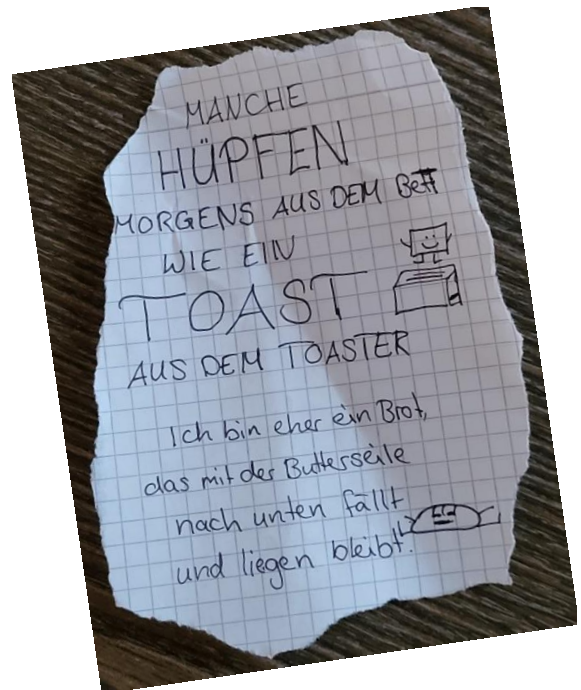 MANCHE
HÜPFEN
MORGENS AUS DEM BeTT
WIE EIN
TOAST
AUS DEM TOASTER
Ich bin eher ein Brot,
das mit der Butterseite
nach unten fällt
und liegen bleibt.